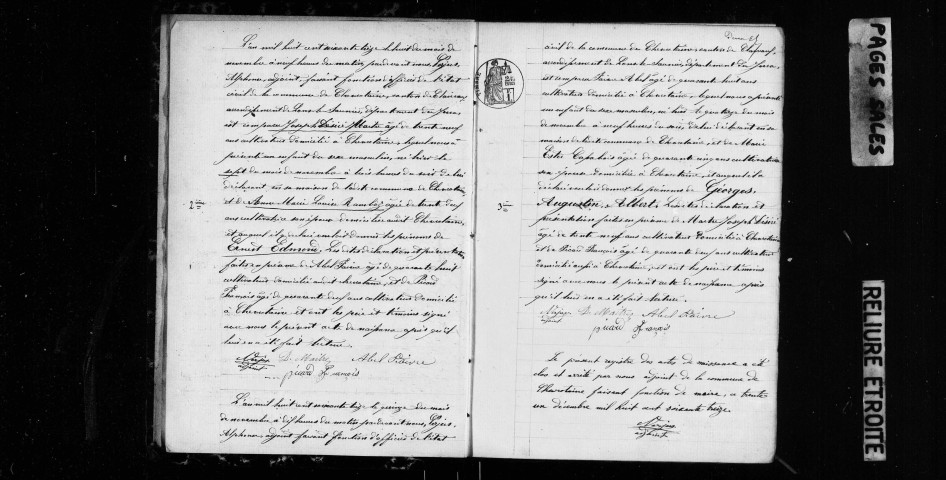 L'an mil huit cent soixante treize le huit du mois de
novembre à neuf heures du matin, pardevant nous,
Alphonse, adjoint, faisant fonctions d'officier de l'état
civil de la commune de Charetaine, canton de
arrondissement de Lons-le-Saunier, département du Jura,
est comparu Joseph Désiré Maitre âgé de trente neuf
ans cultivateur domicilié à Charetaine, lequel nous a
présenté un enfant du sexe masculin, né hier le
sept du mois de novembre à huit heures du soir de lui
déclarant en sa maison de la dite commune de
et de Anne Marie Louise âgée de trente
ans cultivatrice son épouse domiciliée audit
et auquel il a déclaré vouloir donner les prénoms de
Ernest Edmond. Les dites déclaration et présentation
faites en présence de Abel Fèvre âgé de quarante huit
cultivateur domicilié audit et de Picard
François âgé de quarante neuf ans cultivateur domicilié
à et ont les père et témoins signé
avec nous le présent acte de naissance après qu'il
leur en a été fait lecture.
D. Maitre Abel Fèvre
adjoint
picard François
2
L'an mil huit cent soixante treize le quinze du mois
de novembre à dix heures du matin pardevant nous,
Alphonse, adjoint faisant fonctions d'officier de l'état
civil de la commune de canton de
arrondissement de Lons-le-Saunier, département du Jura,
est comparu Fèvre Abel âgé de quarante huit ans
cultivateur domicilié à lequel nous a présenté
un enfant du sexe masculin, né hier le quatorze du mois
de novembre à neuf heures du soir, de lui déclarant en sa
maison de la dite commune de et de Marie
Estelle âgée de quarante cinq ans cultivatrice
son épouse domiciliée à et auquel il a
déclaré vouloir donner les prénoms de Georges,
Augustin, Albert. Les dites déclaration et
présentation faites en présence de Maitre Joseph Désiré
âgé de trente neuf ans cultivateur domicilié à
et de Picard François âgé de quarante neuf ans cultivateur
domicilié aussi à et ont les père et témoins
signé avec nous le présent acte de naissance après
qu'il leur en a été fait lecture.
D. Maitre Abel Fèvre
adjoint
picard François
3
Le présent registre des actes de naissance a été
clos et arrêté par nous adjoint de la commune de
faisant fonction de maire, ce trente
un décembre mil huit cent soixante treize
adjoint
PAGES SALES
RELIURE ETROITE